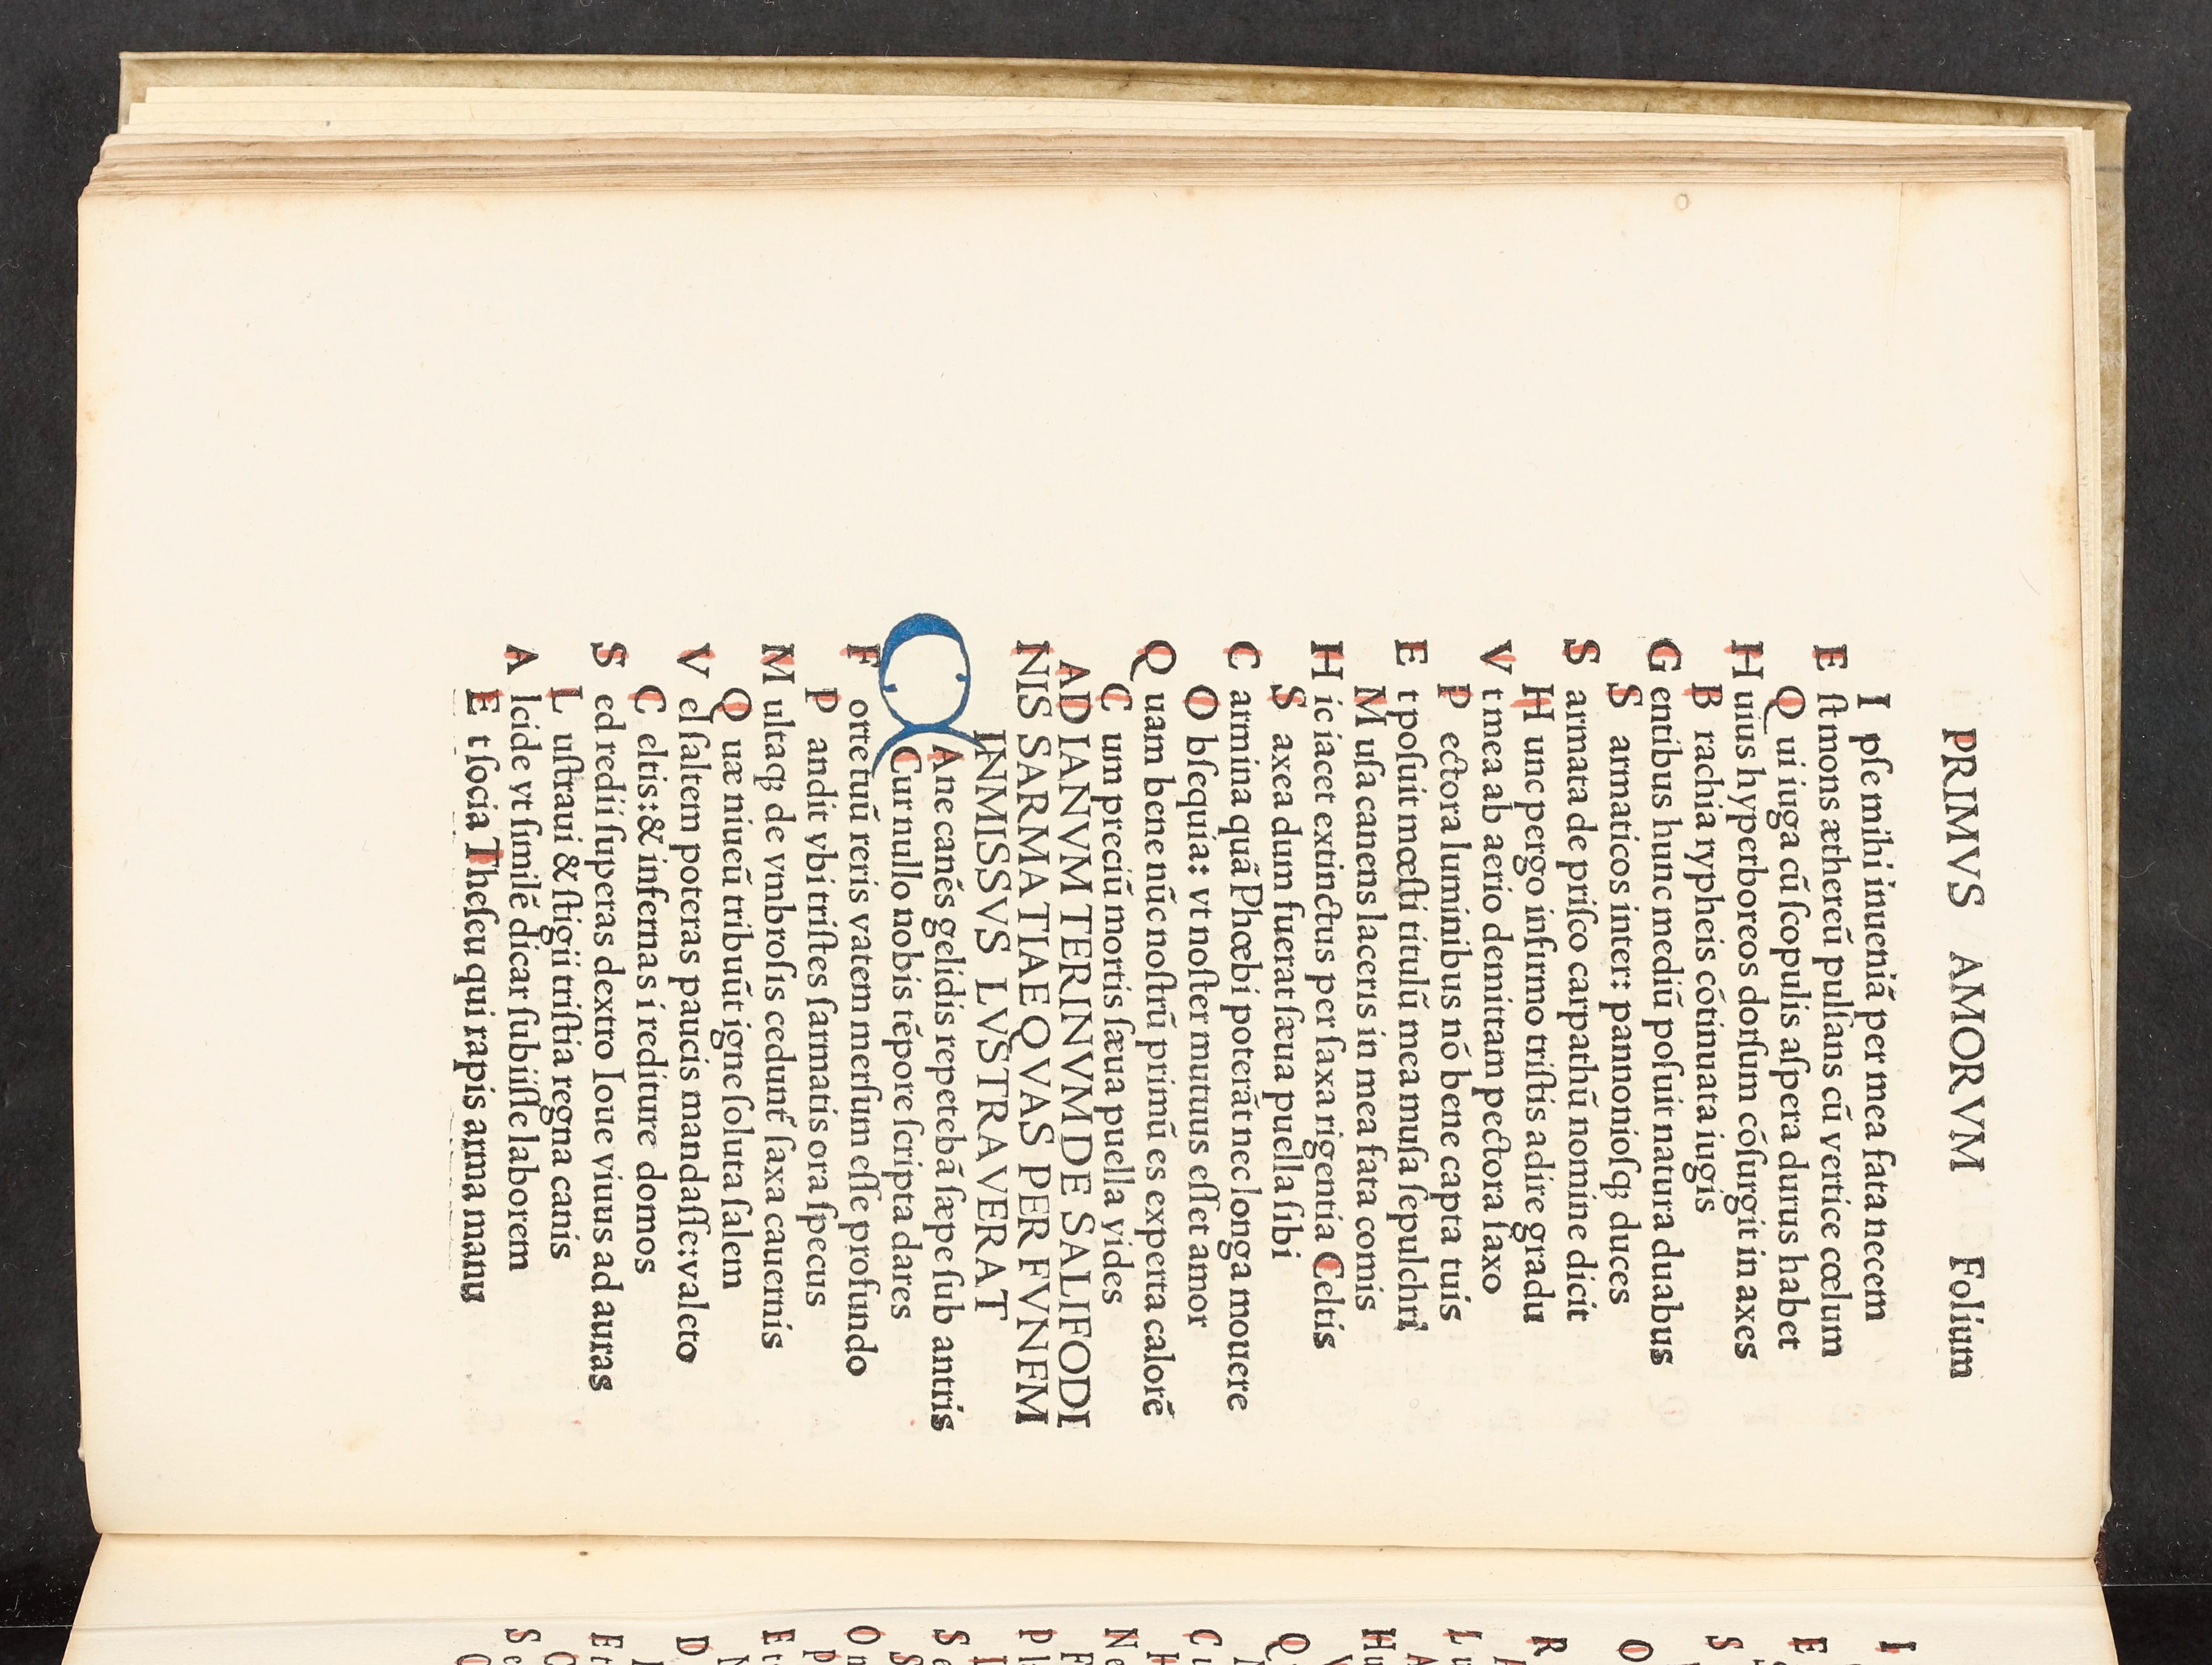 PRIMVS AMORVM Folium
I pſe mihi inueniã per mea fata necem
E ſt mons æthereũ pulſans cũ vertice cœlum
Q ui iuga cũ ſcopulis aſpera durus habet
H uius hyperboreos dorſum cõſurgit in axes
B rachia rypheis cõtinuata iugis
G entibus hunc mediũ poſuit natura duabus
S armaticos inter: pannonioſqꝫ duces
S armata de priſco carpathũ nomine dicit
H unc pergo infirmo triſtis adire gradu
V t mea ab aerio demittam pectora ſaxo
P ectora luminibus nõ bene capta tuis
E t poſuit mœſti titulũ mea muſa ſepulchri
M uſa canens laceris in mea fata comis
H ic iacet extinctus per ſaxa rigentia Celtis
S axea dum fuerat ſæua puella ſibi
C armina quã Phœbi poterãt nec longa mouere
O bſequia: vt noſter mutuus eſſet amor
Q uam bene nũc noſtrũ primũ es experta calorẽ
C um preciũ mortis ſæua puella vides
AD IANVM TERINVM DE SALIFODI
NIS SARMATIAE QVAS PER FVNEM
INMISSVS LVSTRAVERAT
QAne canẽs gelidis repetebã ſæpe ſub antris
Cur nullo nobis tẽpore ſcripta dares
F orte tuũ reris vatem merſum eſſe profundo
P andit vbi triſtes ſarmatis ora ſpecus
M ultaqꝫ de vmbroſis cedunt ſaxa cauernis
Q uæ niueũ tribuũt igne ſoluta ſalem
V el ſaltem poteras paucis mandaſſe: valeto
C eltis: & infernas i rediture domos
S ed redii ſuperas dextro Ioue viuus ad auras
L uſtraui & ſtigii triſtia regna canis
A lcide vt ſimilẽ dicar ſubiiſſe laborem
E t ſocia Theſeu qui rapis arma manu
I
E
S
O
R
L
Hu
Q
Cu
Ne
Pl
Se
S
On
P
Et
D
Et
Se